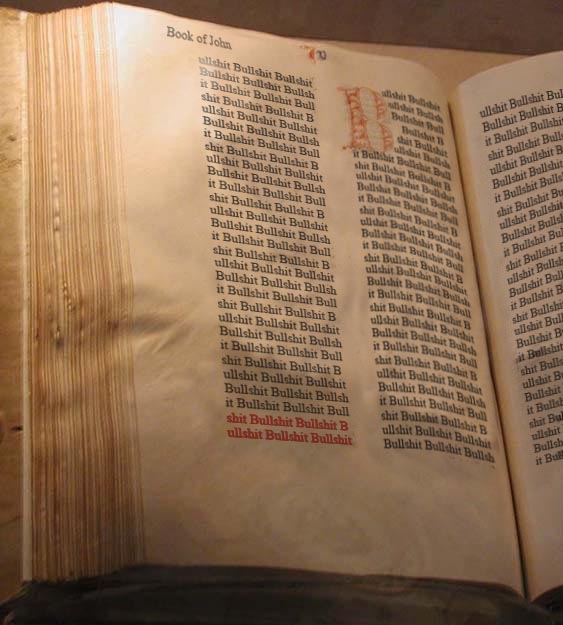 Book of John
ullshit Bullshit Bullshit
Bullshit Bullshit Bullsh
it Bullshit Bullshit Bull
shit Bullshit Bullshit B
ullshit Bullshit Bullshit
Bullshit Bullshit Bullsh
it Bullshit Bullshit Bull
shit Bullshit Bullshit B
ullshit Bullshit Bullshit
Bullshit Bullshit Bullsh
it Bullshit Bullshit Bull
shit Bullshit Bullshit B
ullshit Bullshit Bullshit
Bullshit Bullshit Bullsh
it Bullshit Bullshit Bull
shit Bullshit Bullshit B
ullshit Bullshit Bullshit
Bullshit Bullshit Bullsh
it Bullshit Bullshit Bull
shit Bullshit Bullshit B
ullshit Bullshit Bullshit
Bullshit Bullshit Bullsh
it Bullshit Bullshit Bull
shit Bullshit Bullshit B
ullshit Bullshit Bullshit
Bullshit Bullshit Bullsh
it Bullshit Bullshit Bull
shit Bullshit Bullshit B
ullshit Bullshit Bullshit
ullshit Bullshit
ullshit Bullsh
Bullshit Bull
shit Bullshit B
ullshit Bullsh
it Bullshit Bullshit Bull
shit Bullshit Bullshit B
ullshit Bullshit Bullshit
Bullshit Bullshit Bullsh
it Bullshit Bullshit Bull
shit Bullshit Bullshit B
ullshit Bullshit Bullshit
Bullshit Bullshit Bullsh
it Bullshit Bullshit Bull
shit Bullshit Bullshit B
ullshit Bullshit Bullshit
Bullshit Bullshit Bullsh
it Bullshit Bullshit Bull
shit Bullshit Bullshit B
ullshit Bullshit Bullshit
Bullshit Bullshit Bullsh
it Bullshit Bullshit Bull
shit Bullshit Bullshit B
ullshit Bullshit Bullshit
Bullshit Bullshit Bullsh
it Bullshit Bullshit Bull
shit Bullshit Bullshit B
ullshit Bullshit Bullshit
Bullshit Bullshit Bullsh
ullshit Bullshit
Bullshit Bullshit
it Bullshit
shit Bullshit
ullshit
Bullshit
it Bullshit
shit Bullshit
ullshit
Bullshit
it Bullshit
shit
ullshit
Bullshit
it
shit
ullshit
Bullshit
it
shit
ullshit
Bullshit
it
shit
ullshit
Bullshit
it